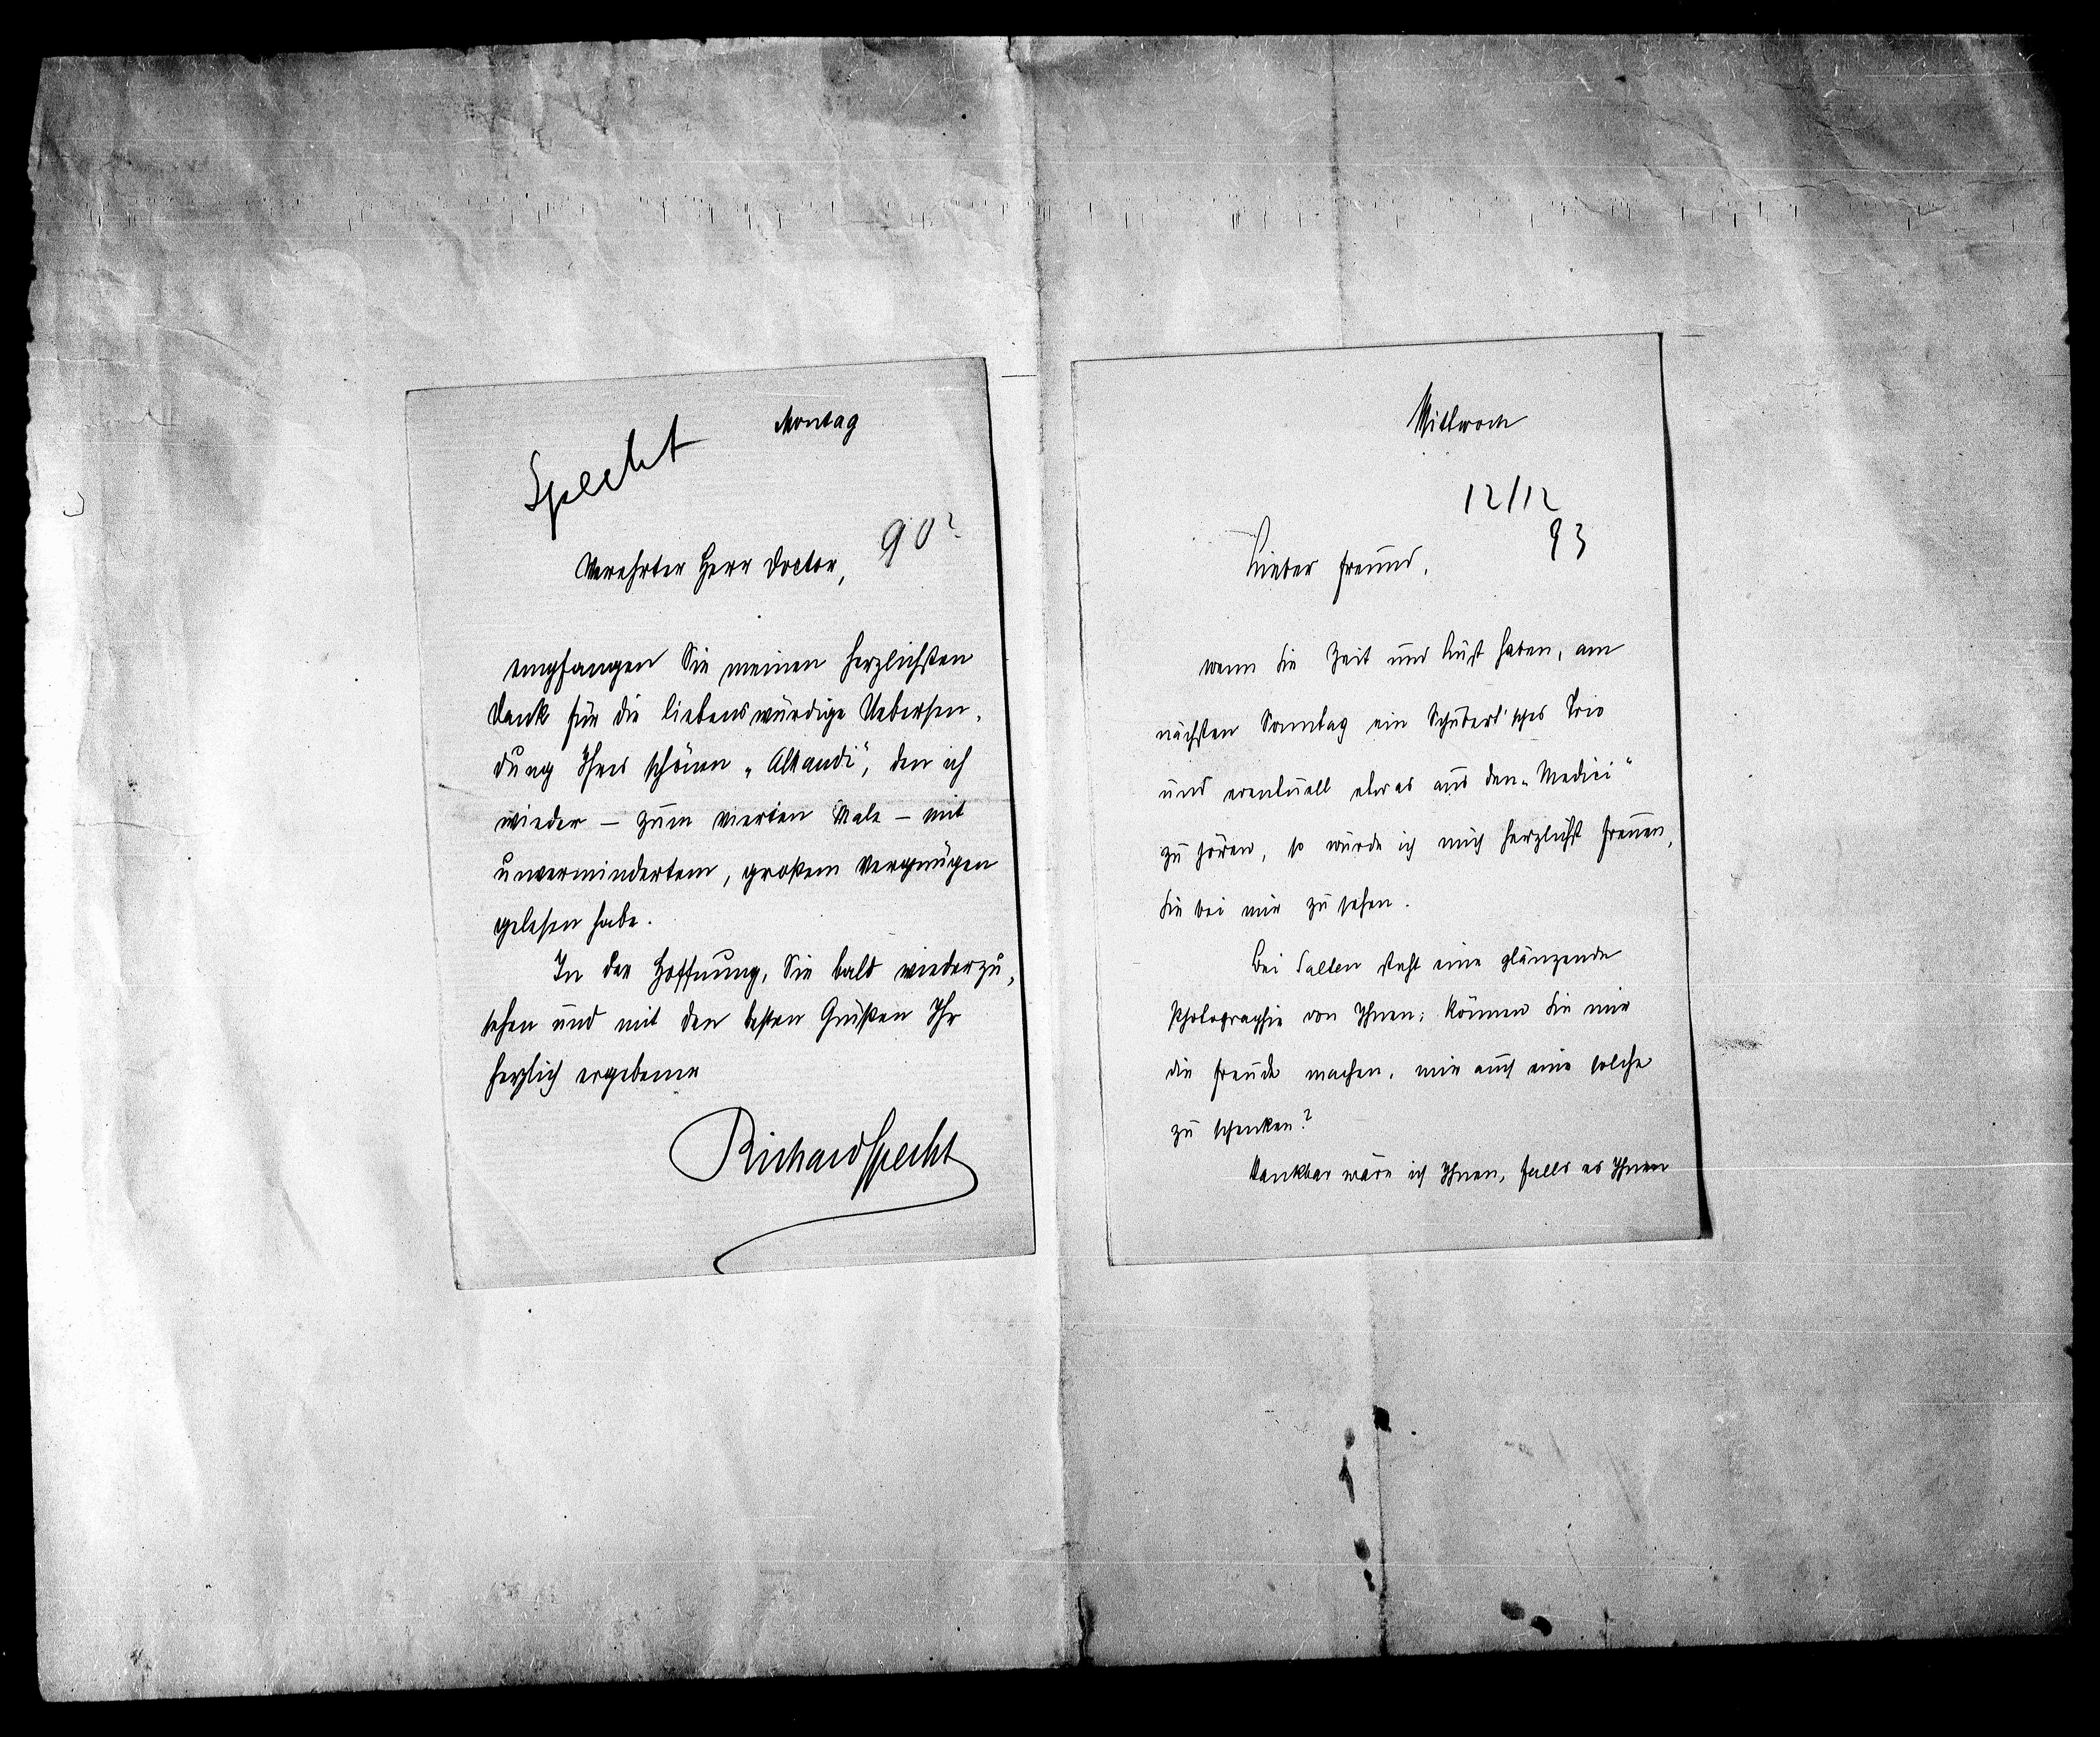 Montag
Specht
90?
Verehrter Herr Doctor,
empfangen Sie meinen herzlichsten
Dank für die liebenswürdige Uebersen-
dung Ihres schönen „Alkandi“, den ich
wieder – zum vierten Male – mit
unvermindertem, großem Vergnügen
gelesen habe.
In der Hoffnung, Sie bald wiederzu-
sehen und mit den besten Grüßen Ihr
herzlich ergebener
Richard Specht
Mittwoch
12/12
93
Lieber Freund,
wenn Sie Zeit und Lust haben, am
nächsten Sonntag ein Schubert'sches Trio
und eventuell etwas aus den „Medici“
zu hören, so würde ich mich herzlichst freuen,
Sie bei mir zu sehen.
Bei Salten steht eine glänzende
Photographie von Ihnen; können Sie mir
die Freude machen, mir auch eine solche
zu schenken?
Dankbar wäre ich Ihnen, falls es Ihnen